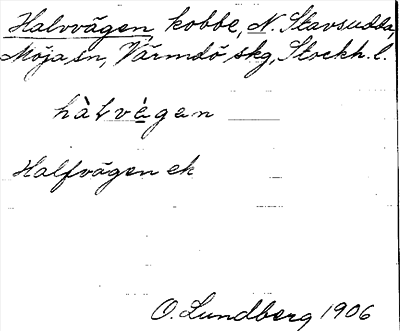 Halvvägen, kobbe, N. Stavsudda,
Möja sn, Värmdö skg, Stockh. l.
hàlvègen
Halfvägen ek
O. Lundberg 1906